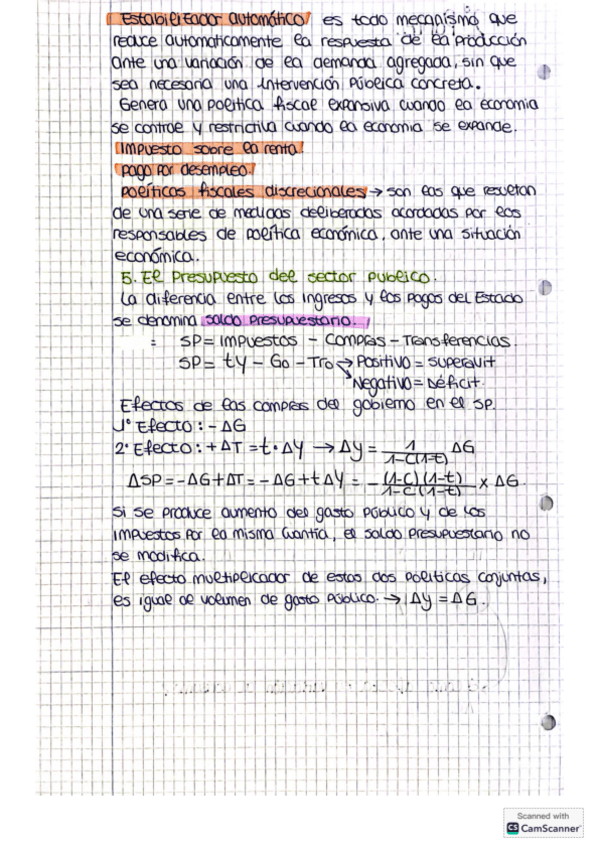 Estabilizador automático es todo mecanismo que
reduce automaticamente la respuesta de la producción
ante una variación de la demanda agregada, sin que
sea necesaria una intervención pública concreta.
Genera una política fiscal expansiva cuando la economía
se contrae y restrictiva cuando la economía se expande.
Impuesto sobre la renta.
Pago por desempleo.
Políticas fiscales discrecionales → son las que resultan
de una serie de medidas deliberadas acordadas por los
responsables de política económica, ante una situación
económica.
5. El Presupuesto del sector público.
La diferencia entre los ingresos y los pagos del Estado
se denomina saldo presupuestario.
= SP = Impuestos - Compras - Transferencias.
SP = tY - Go - Tro → Positivo = Superávit
↘ Negativo = Déficit.
Efectos de las compras del gobierno en el SP.
1º Efecto: - ΔG
2º Efecto: + ΔT = t · ΔY → ΔY = 1/1-C(1-t) ΔG
ΔSP = -ΔG + ΔT = -ΔG + tΔY = - (1-C)(1-t)/1-C(1-t) x ΔG
Si se produce aumento del gasto público y de los
impuestos por la misma cuantía, el saldo presupuestario no
se modifica.
El efecto multiplicador de estas dos políticas conjuntas,
es igual al volumen de gasto público. → ΔY = ΔG.
Scanned with
CS CamScanner